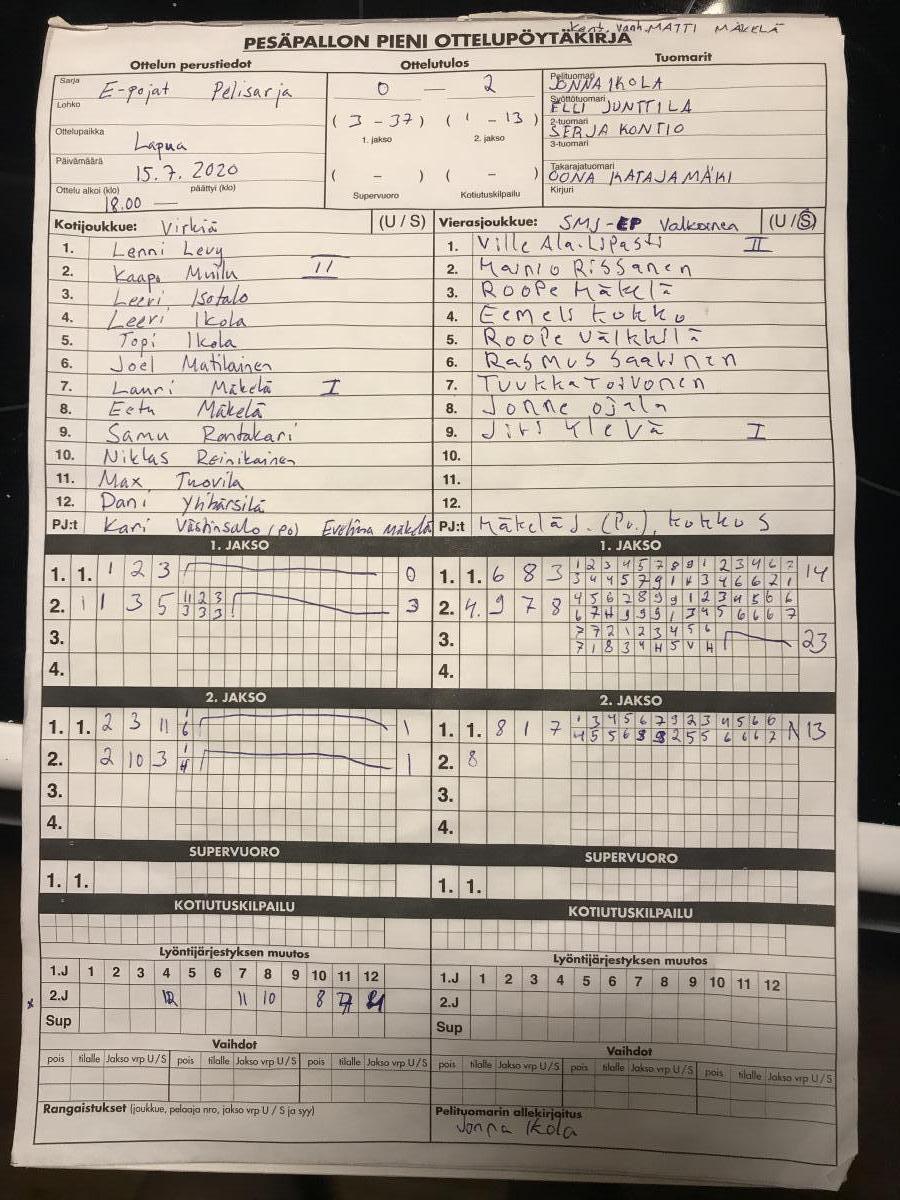 Kent. Vanh. MATTI MÄKELÄ
PESÄPALLON PIENI OTTELUPÖYTÄKIRJA
Ottelun perustiedot Ottelutulos Tuomarit
Sarja E-pojat Pelisarja
Lohko
Ottelupaikka Lapua
Päivämäärä 15.7.2020
Ottelu alkoi (klo) päättyi (klo)
18.00 —
0 — 2
( 3 - 37 ) ( 1 - 13 )
1. jakso 2. jakso
( - ) ( - )
Supervuoro Kotiutuskilpailu
Pelituomari JONNA IKOLA
Syöttötuomari ELLI JUNTTILA
2-tuomari SERJA KONTIO
3-tuomari
Takarajatuomari OONA KATAJAMÄKI
Kirjuri
Kotijoukkue: Virkiä (U / S)
1. Lenni Levy
2. Kaapo Muilu II
3. Leevi Isotalo
4. Leevi Ikola
5. Topi Ikola
6. Joel Matilainen
7. Lauri Mäkelä I
8. Eetu Mäkelä
9. Samu Rantakari
10. Niklas Reinikainen
11. Max Tuovila
12. Dani Ylihärsilä
PJ:t Kari (Po) Eveliina Mäkelä
Vierasjoukkue: SMJ-EP Valkoinen (U / S)
1. Ville Ala-Lipasti II
2. Mainio Rissanen
3. Roope Mäkelä
4. Eemeli Kokko
5. Roope Välkkilä
6. Rasmus Saarinen
7. Tuukka Toivonen
8. Jonne Ojala
9. Jiri Ylevä I
10.
11.
12.
PJ:t Mäkelä J. (Po.), Kokko S
1. JAKSO
1. 1. 1 2 3 0
2. 11 3 5 11 2 3 3
3 3 3
3.
4.
1. JAKSO
1. 1. 6 8 3 14
2. 4. 9 7 8
3. 23
4.
2. JAKSO
1. 1. 2 3 11 1 1
6
2. 2 10 3 1 1
4
3.
4.
2. JAKSO
1. 1. 8 1 7 1 3 4 5 6 7 9 2 3 4 5 6 6 N 13
2. 8
3.
4.
SUPERVUORO
1. 1.
SUPERVUORO
1. 1.
KOTIUTUSKILPAILU
KOTIUTUSKILPAILU
Lyöntijärjestyksen muutos
1.J 1 2 3 4 5 6 7 8 9 10 11 12
x 2.J 12 11 10 8 7
Sup
Lyöntijärjestyksen muutos
1.J 1 2 3 4 5 6 7 8 9 10 11 12
2.J
Sup
Vaihdot
pois tilalle Jakso vrp U / S pois tilalle Jakso vrp U / S pois tilalle Jakso vrp U / S
Vaihdot
pois tilalle Jakso vrp U / S pois tilalle Jakso vrp U / S pois tilalle Jakso vrp U / S
Rangaistukset (joukkue, pelaaja nro, jakso vrp U / S ja syy)
Pelituomarin allekirjoitus
Jonna Ikola